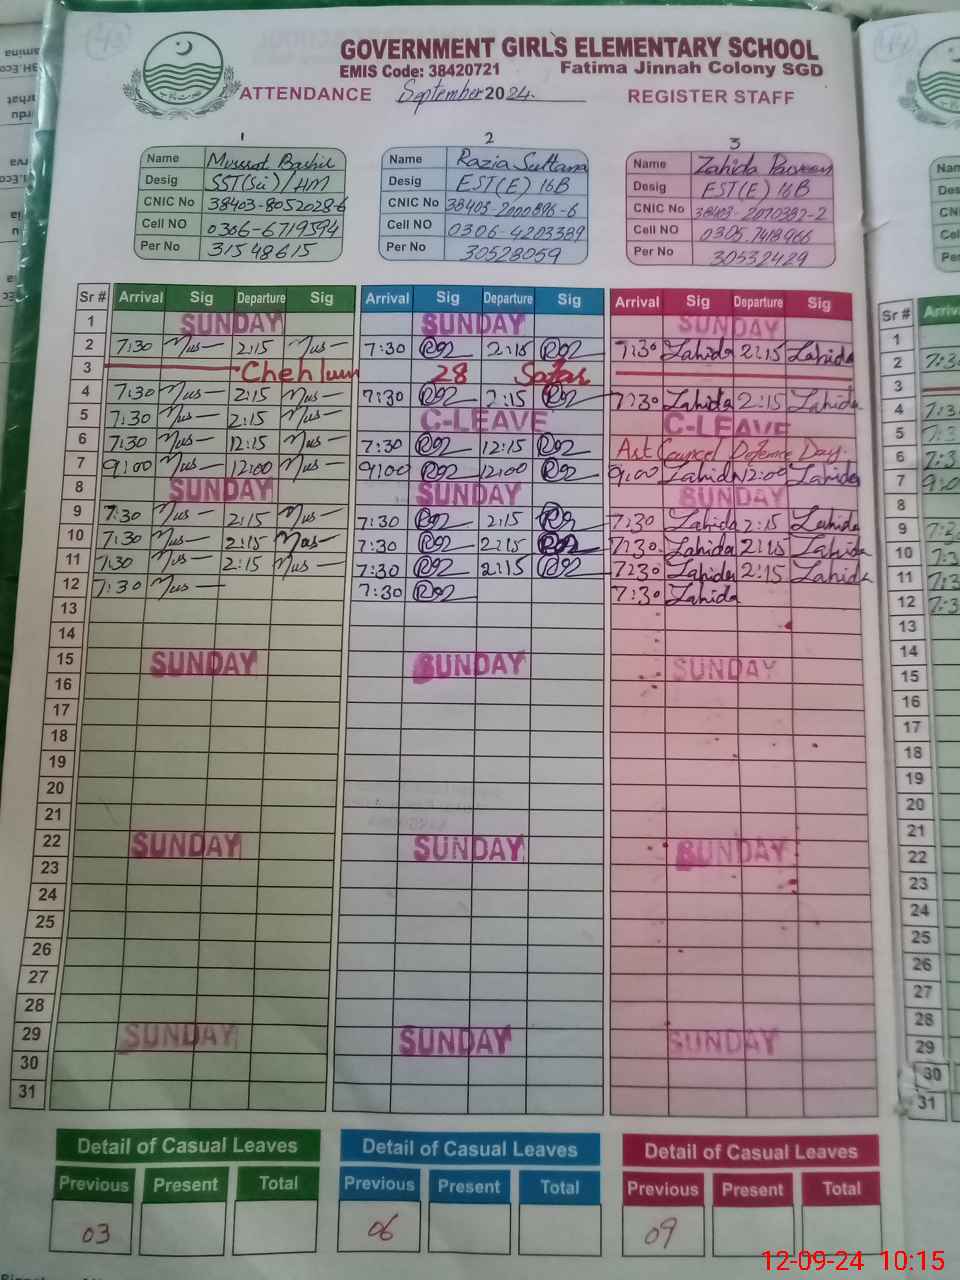 GOVERNMENT GIRLS ELEMENTARY SCHOOL
EMIS Code: 38420721 Fatima Jinnah Colony SGD
ATTENDANCE September 2024. REGISTER STAFF
1 2 3
Name Mussrat Bashir Name Razia Sultana Name Zahida Parveen
Desig SST(Sci)/HM Desig EST(E) 16B Desig EST(E) 16B
CNIC No 38403-8052028-6 CNIC No 38403-2000896-6 CNIC No 38403-2070382-2
Cell NO 0306-6719594 Cell NO 0306-4203389 Cell NO 0305-7418966
Per No 31548615 Per No 30528059 Per No 30532429
Sr # Arrival Sig Departure Sig Arrival Sig Departure Sig Arrival Sig Departure Sig Sr #
1 SUNDAY SUNDAY SUNDAY 1
2 7:30 Mus 2:15 Mus 7:30 R92 2:15 R92 7:30 Zahida 2:15 Zahida 2
3 Chehlum 28 Safar 3
4 7:30 Mus 2:15 Mus 7:30 R92 2:15 R92 7:30 Zahida 2:15 Zahida 4
5 7:30 Mus 2:15 Mus C-LEAVE C-LEAVE 5
6 7:30 Mus 12:15 Mus 7:30 R92 12:15 R92 Defence Day. 6
7 9:00 Mus 12:00 Mus 9:00 R92 12:00 R92 9:00 Zahida 12:00 Zahida 7
8 SUNDAY SUNDAY SUNDAY 8
9 7:30 Mus 2:15 Mus 7:30 R92 2:15 R92 7:30 Zahida 2:15 Zahida 9
10 7:30 Mus 2:15 Mus 7:30 R92 2:15 R92 7:30 Zahida 2:15 Zahida 10
11 7:30 Mus 2:15 Mus 7:30 R92 2:15 R92 7:30 Zahida 2:15 Zahida 11
12 7:30 Mus 7:30 R92 7:30 Zahida 12
13 13
14 14
15 SUNDAY SUNDAY SUNDAY 15
16 16
17 17
18 18
19 19
20 20
21 21
22 SUNDAY SUNDAY SUNDAY 22
23 23
24 24
25 25
26 26
27 27
28 28
29 SUNDAY SUNDAY SUNDAY 29
30 30
31 31
Detail of Casual Leaves Detail of Casual Leaves Detail of Casual Leaves
Previous Present Total Previous Present Total Previous Present Total
03 06 09
12-09-24 10:15